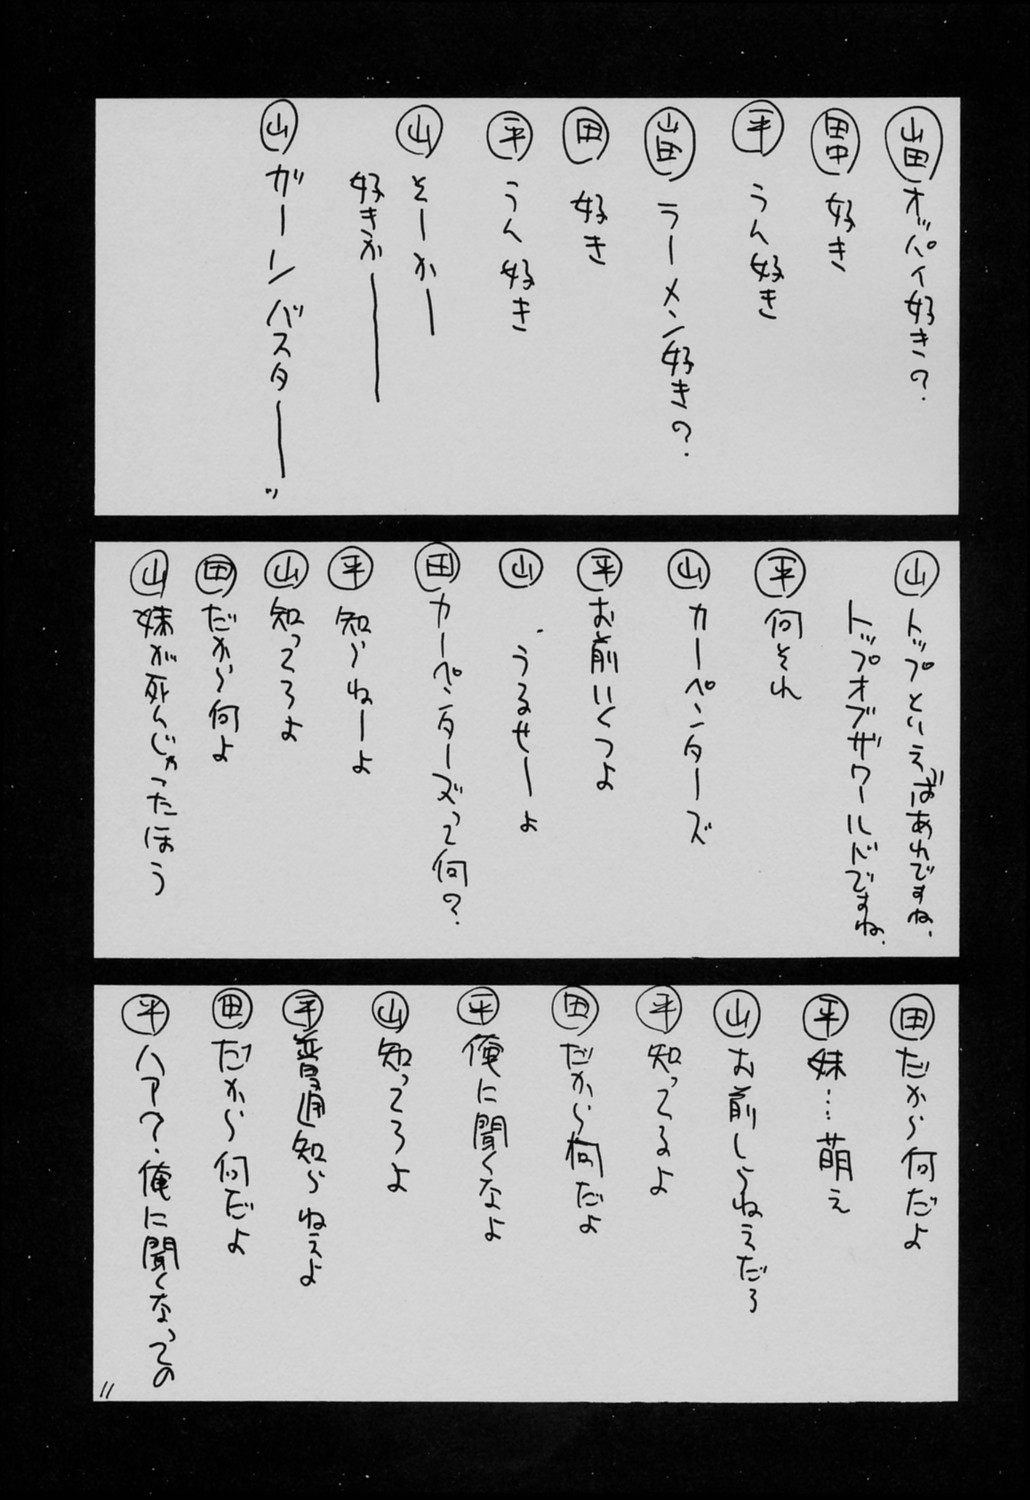 山田 オッパイ好きの?
田中 好き
平 うん好き
山田 ラーメン好きの?
田 好き
平 うん好き
山 そーかー
好きかー
山 ガーンバスターーッ
山 トップといえばあれですね、
トップオブザワールドですね、
平 何それ
山 カーペンターズ
平 お前いくつよ
山 うるせーよ
田 カーペンターズって何?
平 知らねーよ
山 知ってろよ
田 だから何よ
山 妹が死んじゃったほう
田 だから何だよ
平 妹…萌え
山 お前しらねえだろ
平 知ってるよ
田 だから何だよ
平 俺に聞くなよ
山 知ってろよ
平 普通知らねぇよ
田 だから何だよ
平 ハア?俺に聞くなっての
11